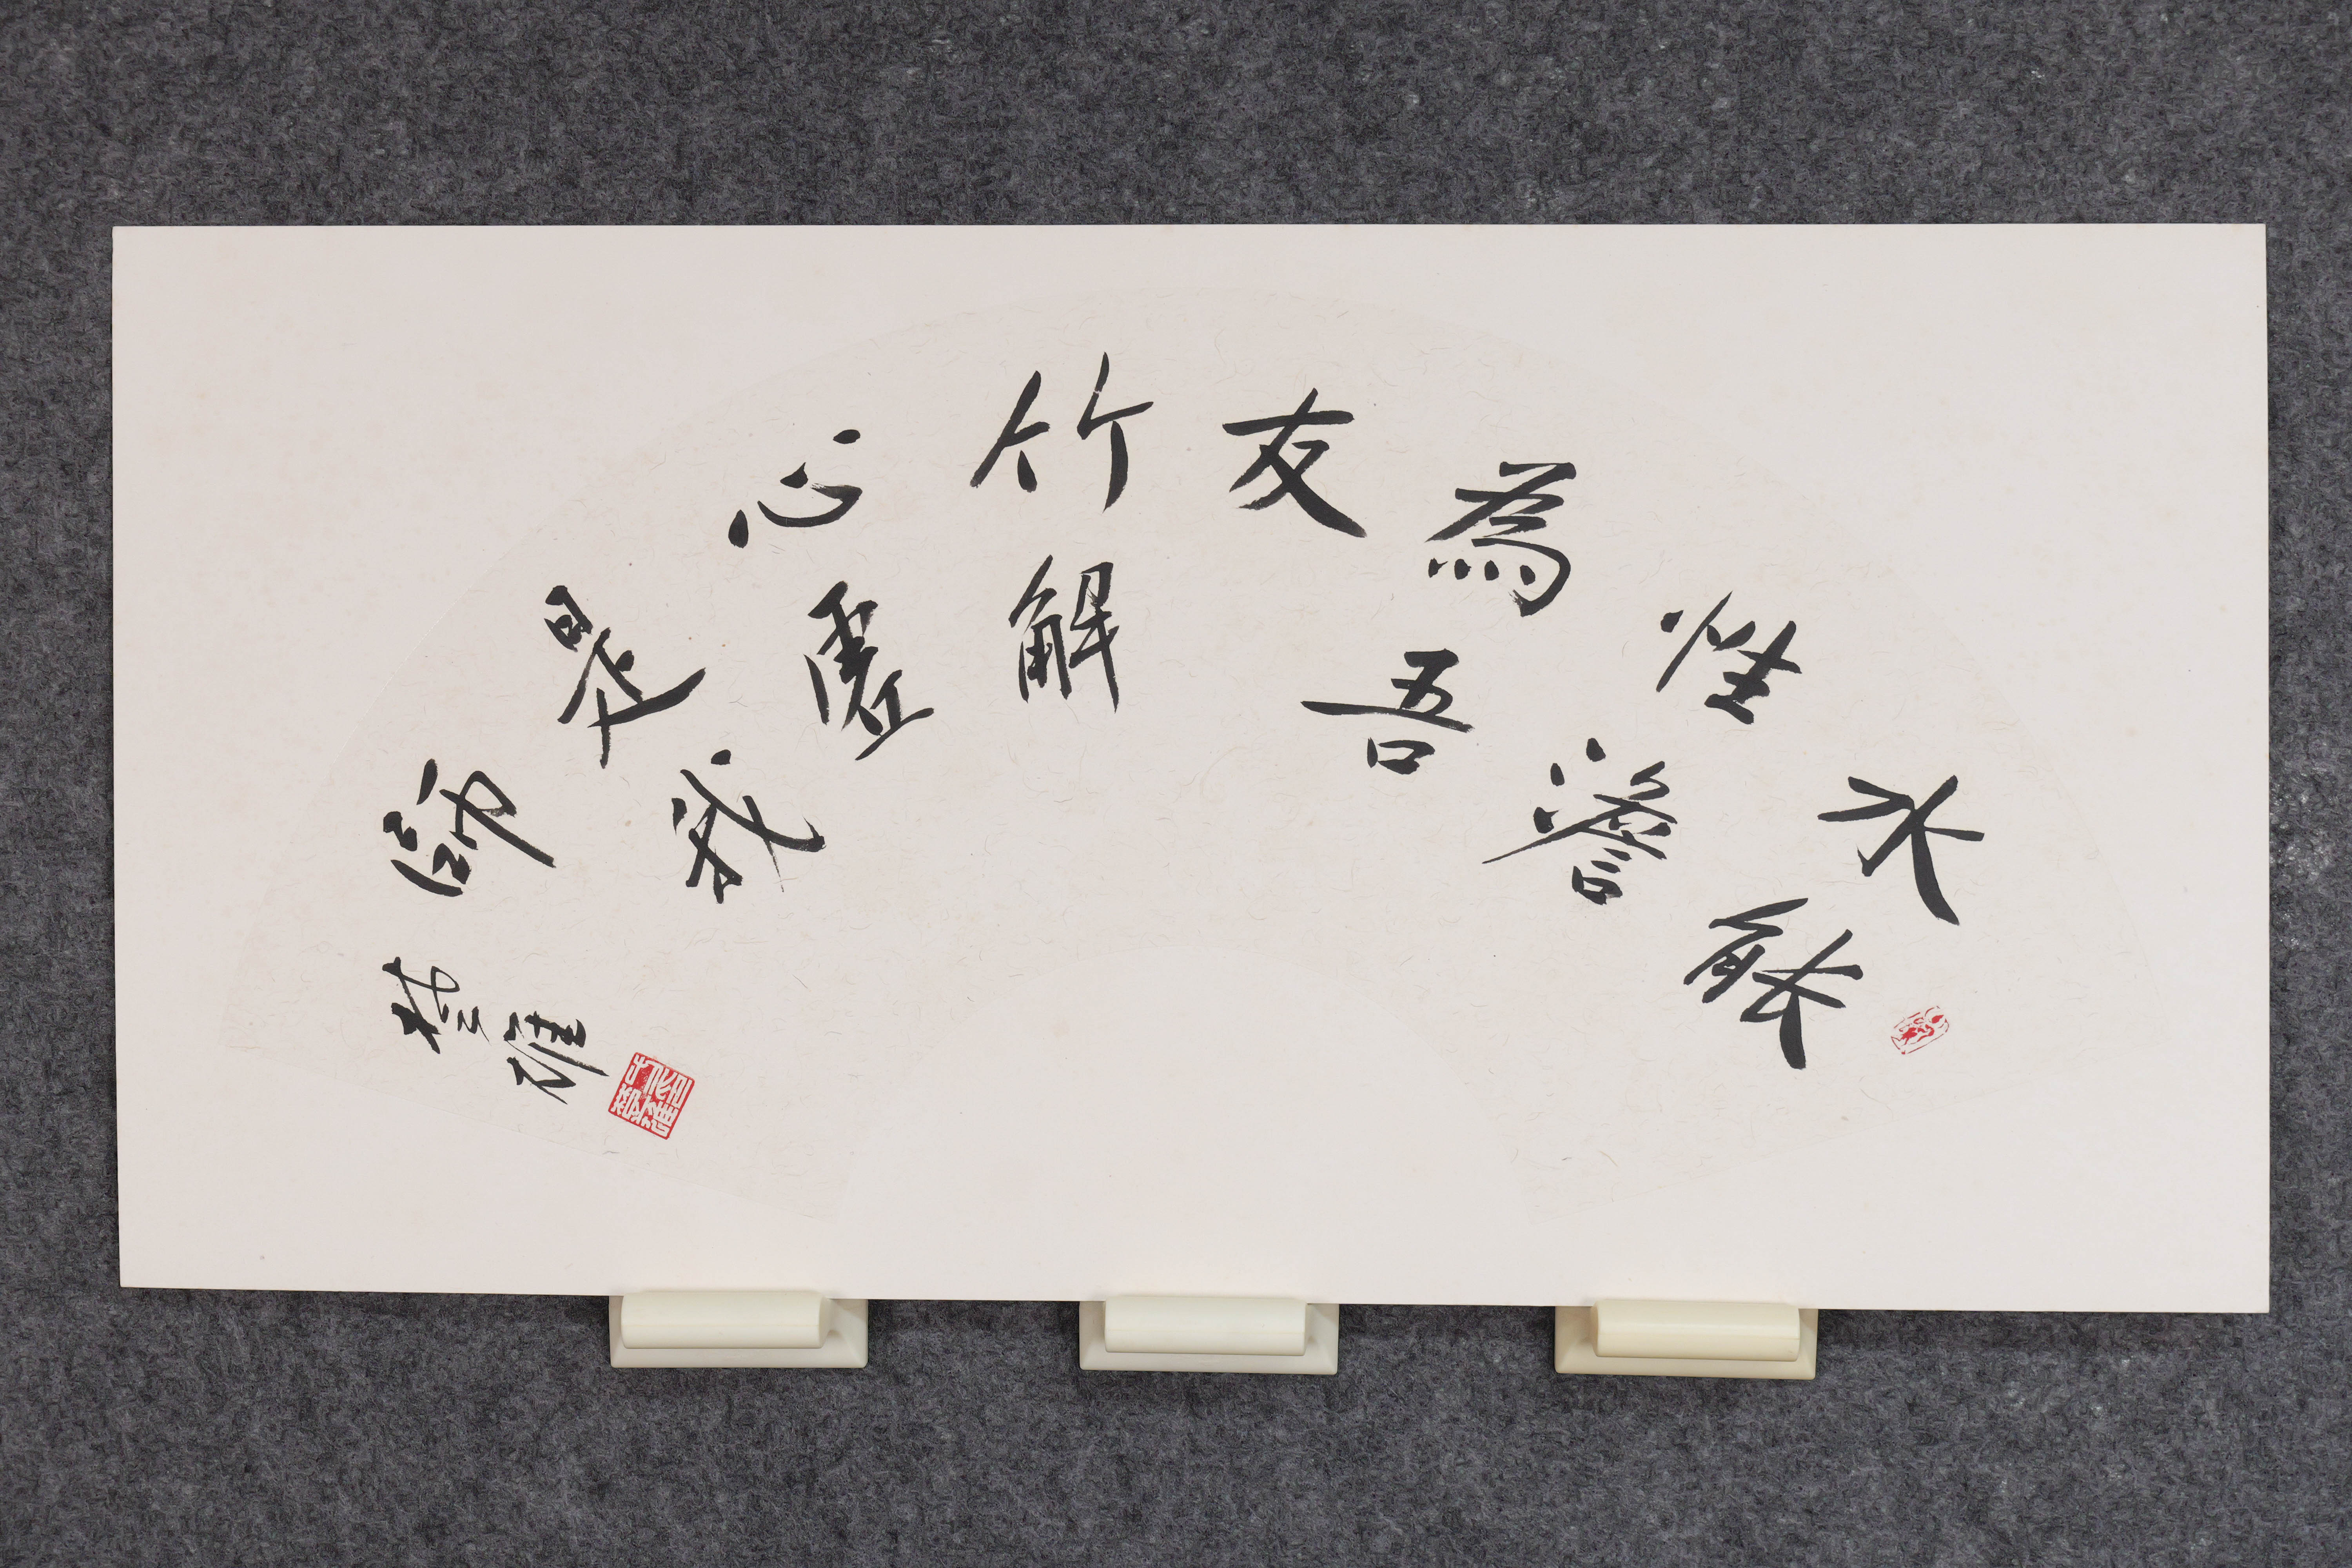 水能
性澹
為吾
友
竹解
心虛
是我
師
雄